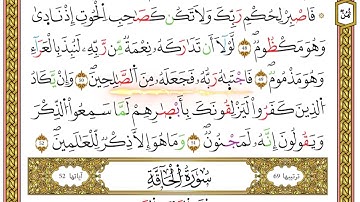 فَٱصْبِرْ لِحُكْمِ رَبِّكَ وَلَا تَكُن كَصَاحِبِ ٱلْحُوتِ إِذْ نَادَىٰ
وَهُوَ مَكْظُومٌ ٤٨ لَّوْلَآ أَن تَدَٰرَكَهُۥ نِعْمَةٌ مِّن رَّبِّهِۦ لَنُبِذَ بِٱلْعَرَآءِ
وَهُوَ مَذْمُومٌ ٤٩ فَٱجْتَبَٰهُ رَبُّهُۥ فَجَعَلَهُۥ مِنَ ٱلصَّٰلِحِينَ ٥٠ وَإِن يَكَادُ
ٱلَّذِينَ كَفَرُوا۟ لَيُزْلِقُونَكَ بِأَبْصَٰرِهِمْ لَمَّا سَمِعُوا۟ ٱلذِّكْرَ
وَيَقُولُونَ إِنَّهُۥ لَمَجْنُونٌ ٥١ وَمَا هُوَ إِلَّا ذِكْرٌ لِّلْعَٰلَمِينَ ٥٢
ترتيبها 69 سُورَةُ ٱلْحَاقَّةِ آياتها 52